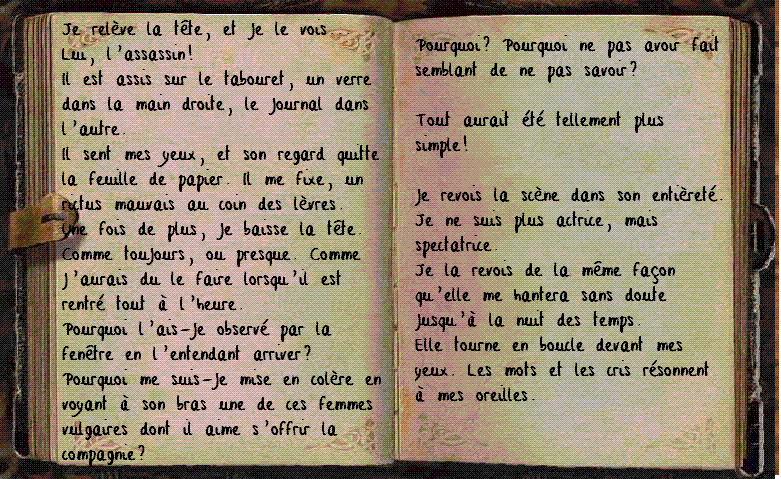 Je relève la tête, et je le vois
Lui, l'assassin!
Il est assis sur le tabouret, un verre
dans la main droite, le journal dans
l'autre.
Il sent mes yeux, et son regard quitte
la feuille de papier. Il me fixe, un
rictus mauvais au coin des lèvres.
Une fois de plus, je baisse la tête.
Comme toujours, ou presque. Comme
j'aurais du le faire lorsqu'il est
rentré tout à l'heure.
Pourquoi l'ais-je observé par la
fenêtre en l'entendant arriver?
Pourquoi me suis-je mise en colère en
voyant à son bras une de ces femmes
vulgaires dont il aime s'offrir la
compagnie?
Pourquoi? Pourquoi ne pas avoir fait
semblant de ne pas savoir?
Tout aurait été tellement plus
simple!
Je revois la scène dans son entièreté.
Je ne suis plus actrice, mais
spectatrice.
Je la revois de la même façon
qu'elle me hantera sans doute
jusqu'à la nuit des temps.
Elle tourne en boucle devant mes
yeux. Les mots et les cris résonnent
à mes oreilles.